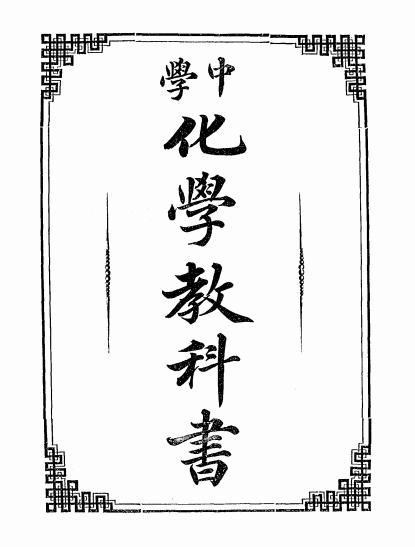 中學
化學教科書